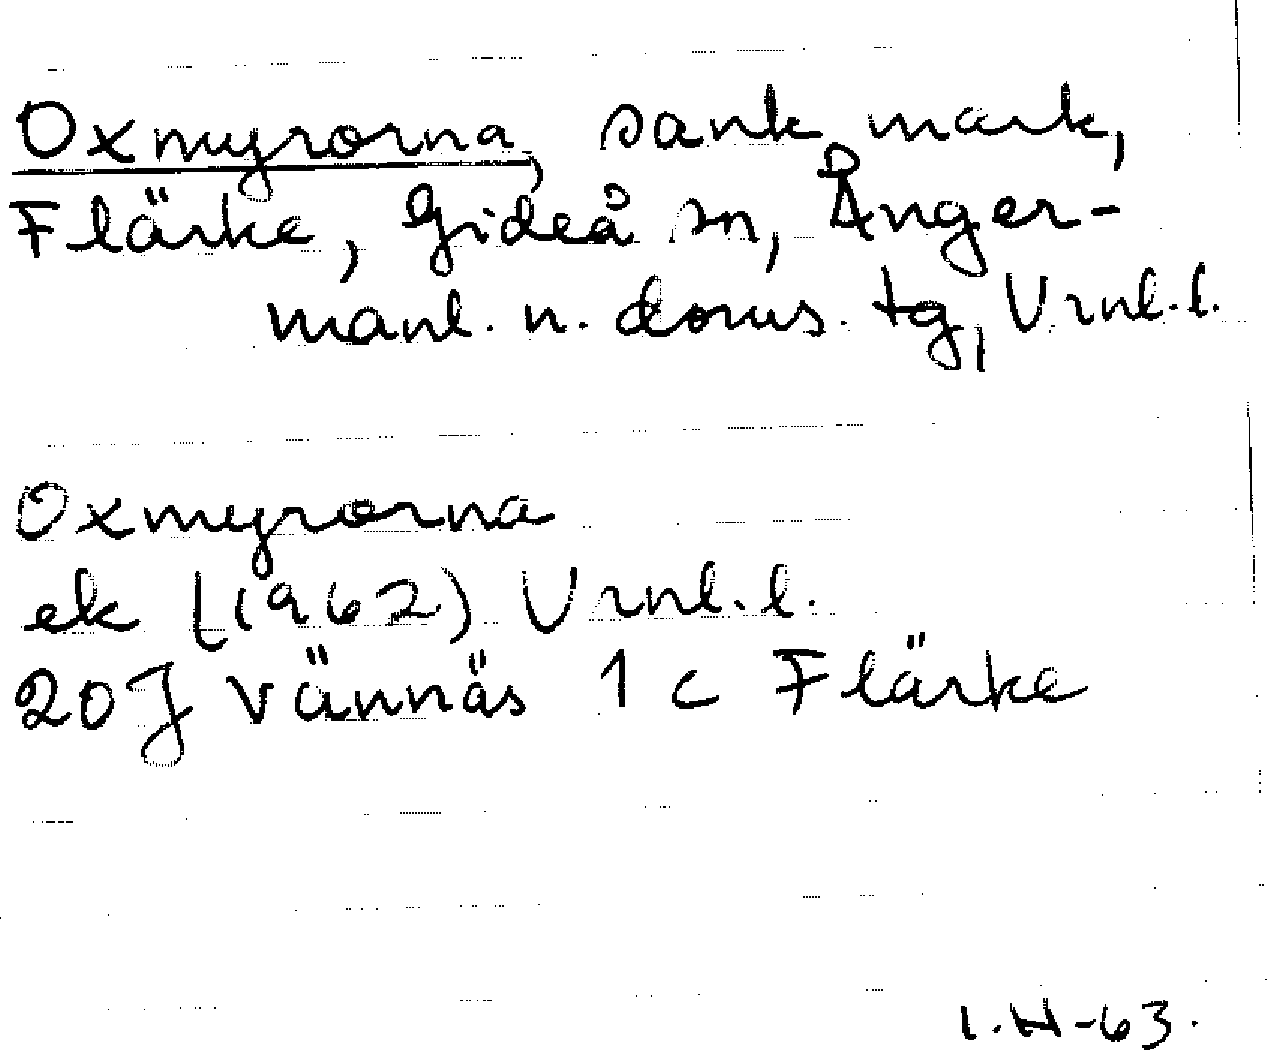 Oxmyrorna, sank mark,
Flärke, Gideå sn, Ånger-
manl. n. doms. tg, Vrnl.l.
Oxmyrorna
ek [(1962) Vrnl.l.
20J Vännäs 1 c Flärke
I.H-63.